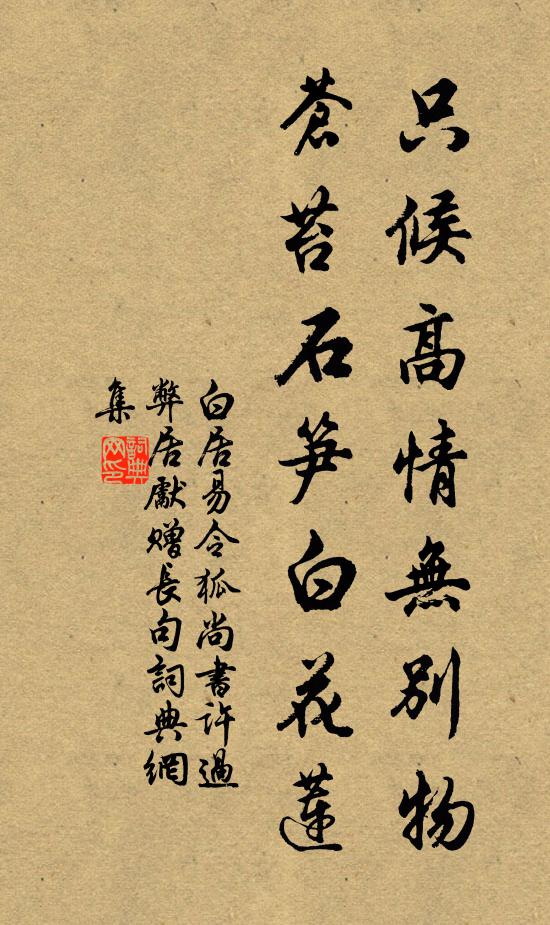 只候高情無別物
蒼苔石笋白花蓮
白居易令狐尚書許過
弊居獻贈長句詞典網
集
詞典網印